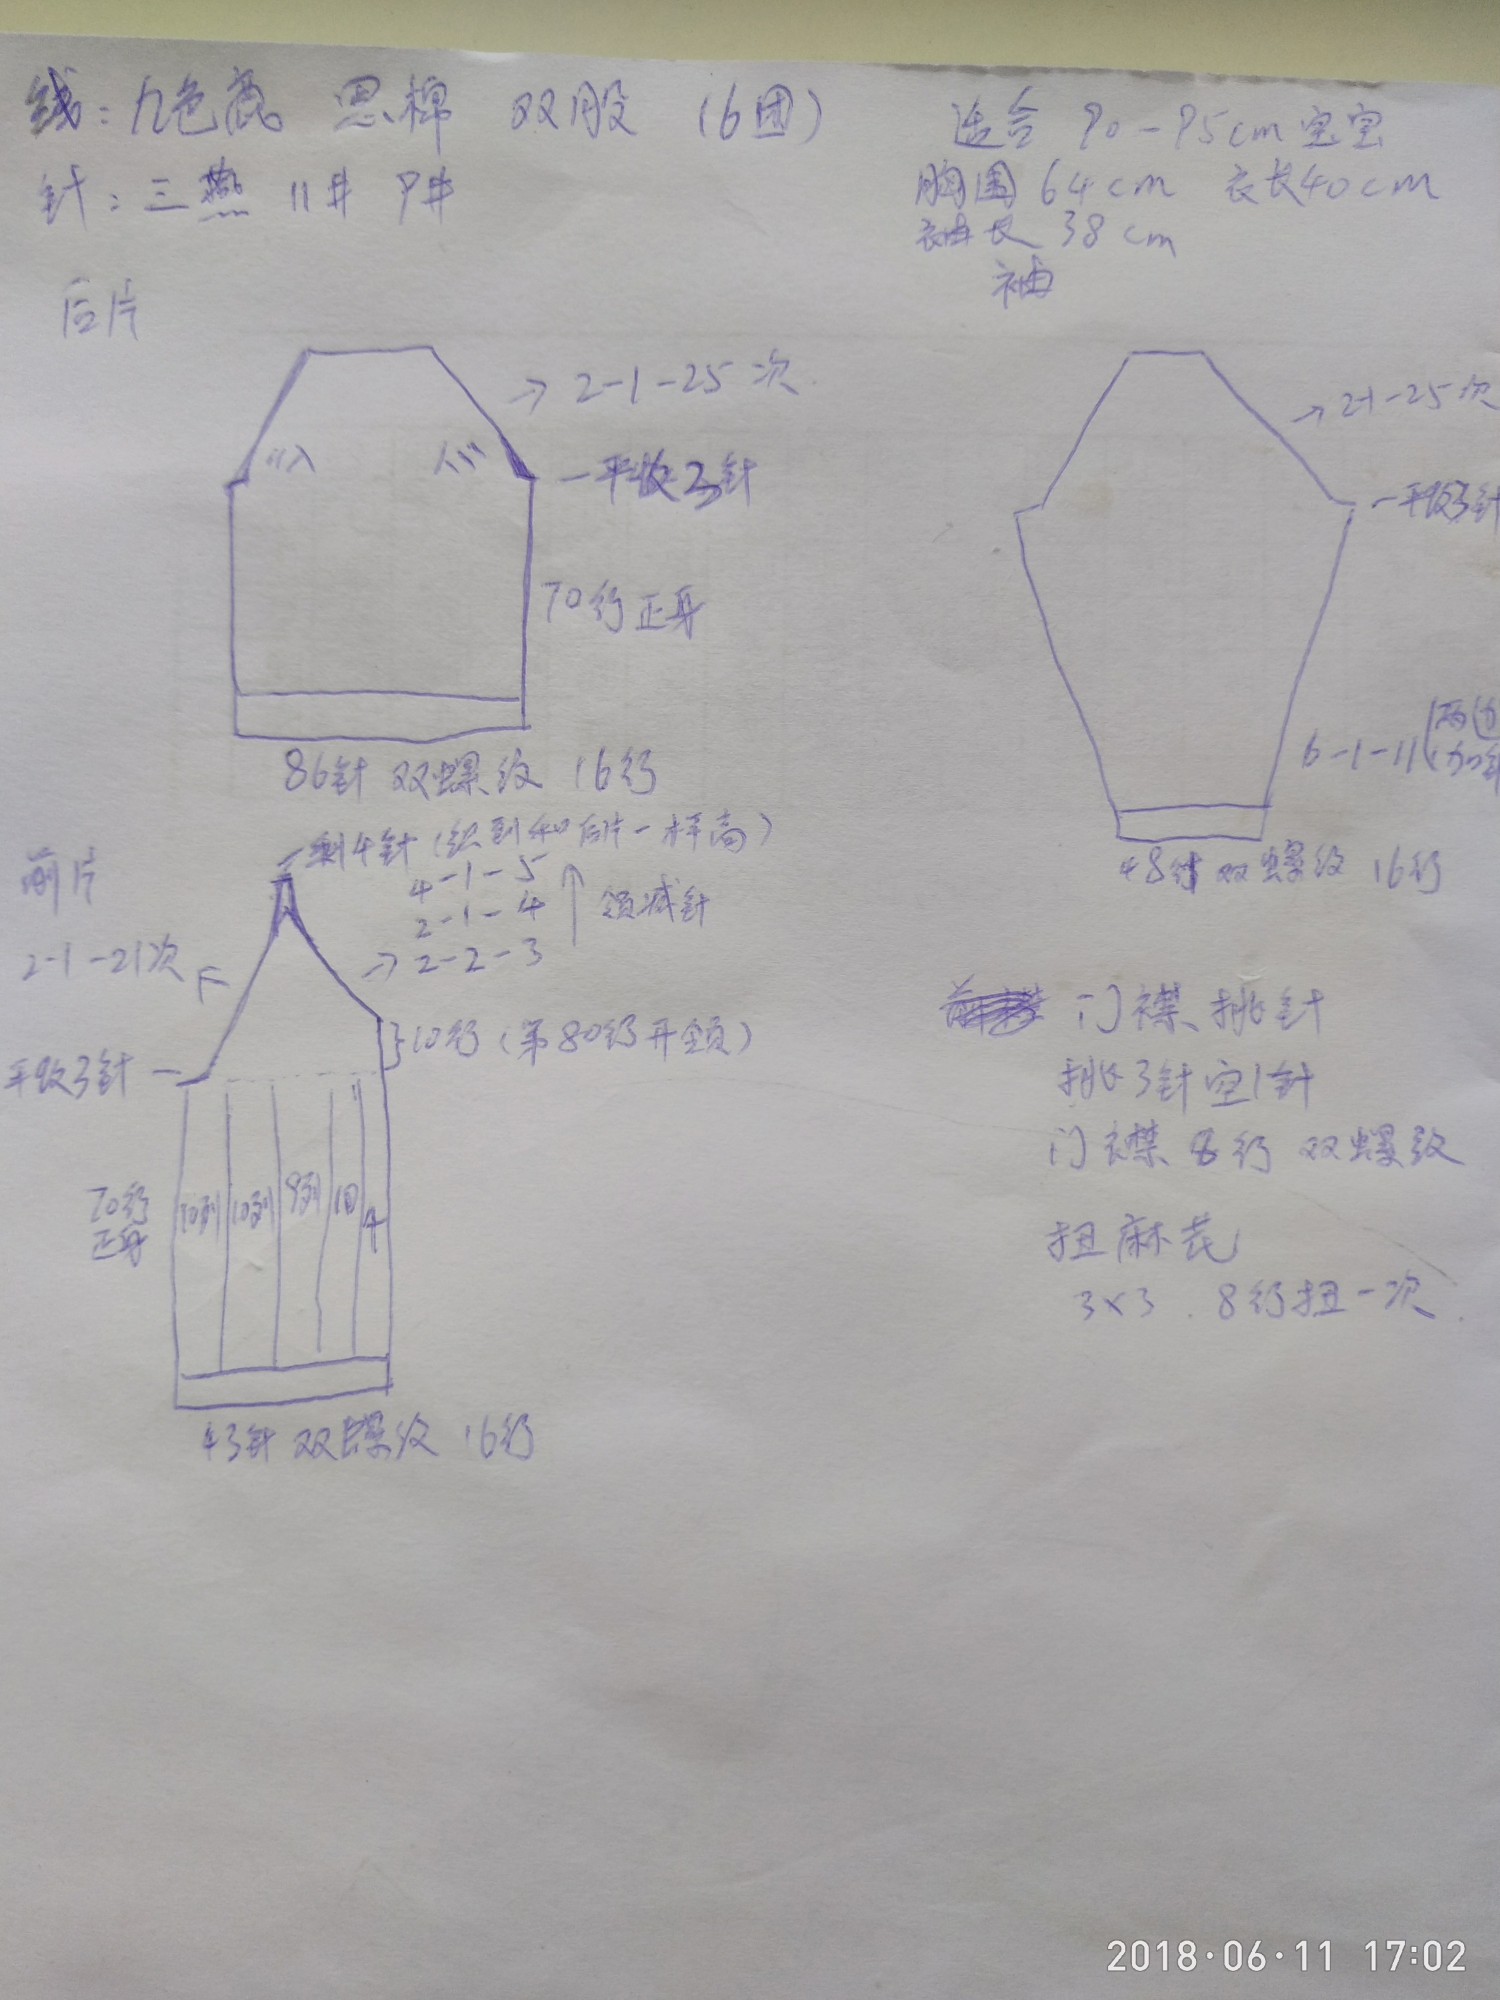 线：九色鹿 思棉 双股 (6团)
针：三燕 11# 9#
适合 90-95cm宝宝
胸围64cm 衣长40cm
袖长 38cm
后片
2-1-25次
平收3针
70行正身
86针 双螺纹 16行
袖
2-1-25次
平收3针
6-1-11(两边
加针
48针 双螺纹 16行
前片
剩4针(织到和后片一样高)
4-1-5
2-1-4
2-2-3
领减针
2-1-21次
10行(第80行开领)
平收3针
70行
正身
10列 10列 9列 10 4
43针 双螺纹 16行
门襟、挑针
挑3针空1针
门襟 8行 双螺纹
扭麻花
3×3. 8行扭一次.
2018·06·11 17:02